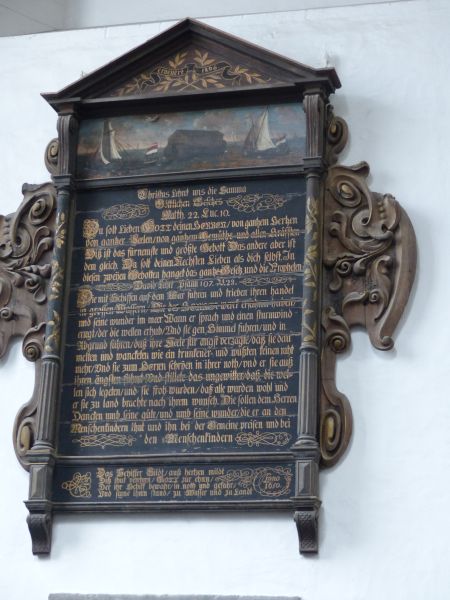 renovirt 1806
Christus lehret uns die Summa
Göttlichen Gesetzes
Matth. 22. Luc. 10.
Du solt lieben GOTT deinen HERREN, von ganzen Hertzen
von gantzer Seelen, von ganzem Gemüthe und allen Kräfften
Diß ist das fürnemste und größeste Gebott Das ander aber ist
dem gleich. Du solt deinen Nechsten lieben als dich selbst. In
diesen zweien Gebotten hanget das gantze Gesetz und die Propheten
David über Psalm 107. V. 23.
Die mit Schiffen auf dem Meer fuhren und trieben ihren handel
in grossen Wassern, Die des HERREN werck erfahren haben
und seine wunder im meer Wann er sprach und einen sturmwind
erregt, der die wellen erhub, Und sie gen Himmel fuhren, und in
Abgrund fuhren, daß ihre Seele für angst verzagte, daß sie dau
melten und wanckelen wie ein trunkener und wüsten keinen raht
mehr, Und sie zum Herren schrien in ihrer noth, und er sie auß
ihren Engsten führet Und stillete das ungewitter, daß die wel
len sich legeten, und sie froh wurden, daß alle wurden wohl und
er sie zu land brachte nach ihrem wunsch. Die sollen dem Herren
Dancken umb seine güte, und umb seine wunder, die er an den
Menschenkindern thut und ihn bei der Gemeine preisen und bei
den Menschenkindern
Das Schiffer Bildt, auß hertzen mildt
Diß thut verehren, GOTT zur ehrn,
Der ihr Schiff bewahr, in noth und gefahr,
Und seine ihnen stand, zu Wasser und zu Landt
Anno
1650.